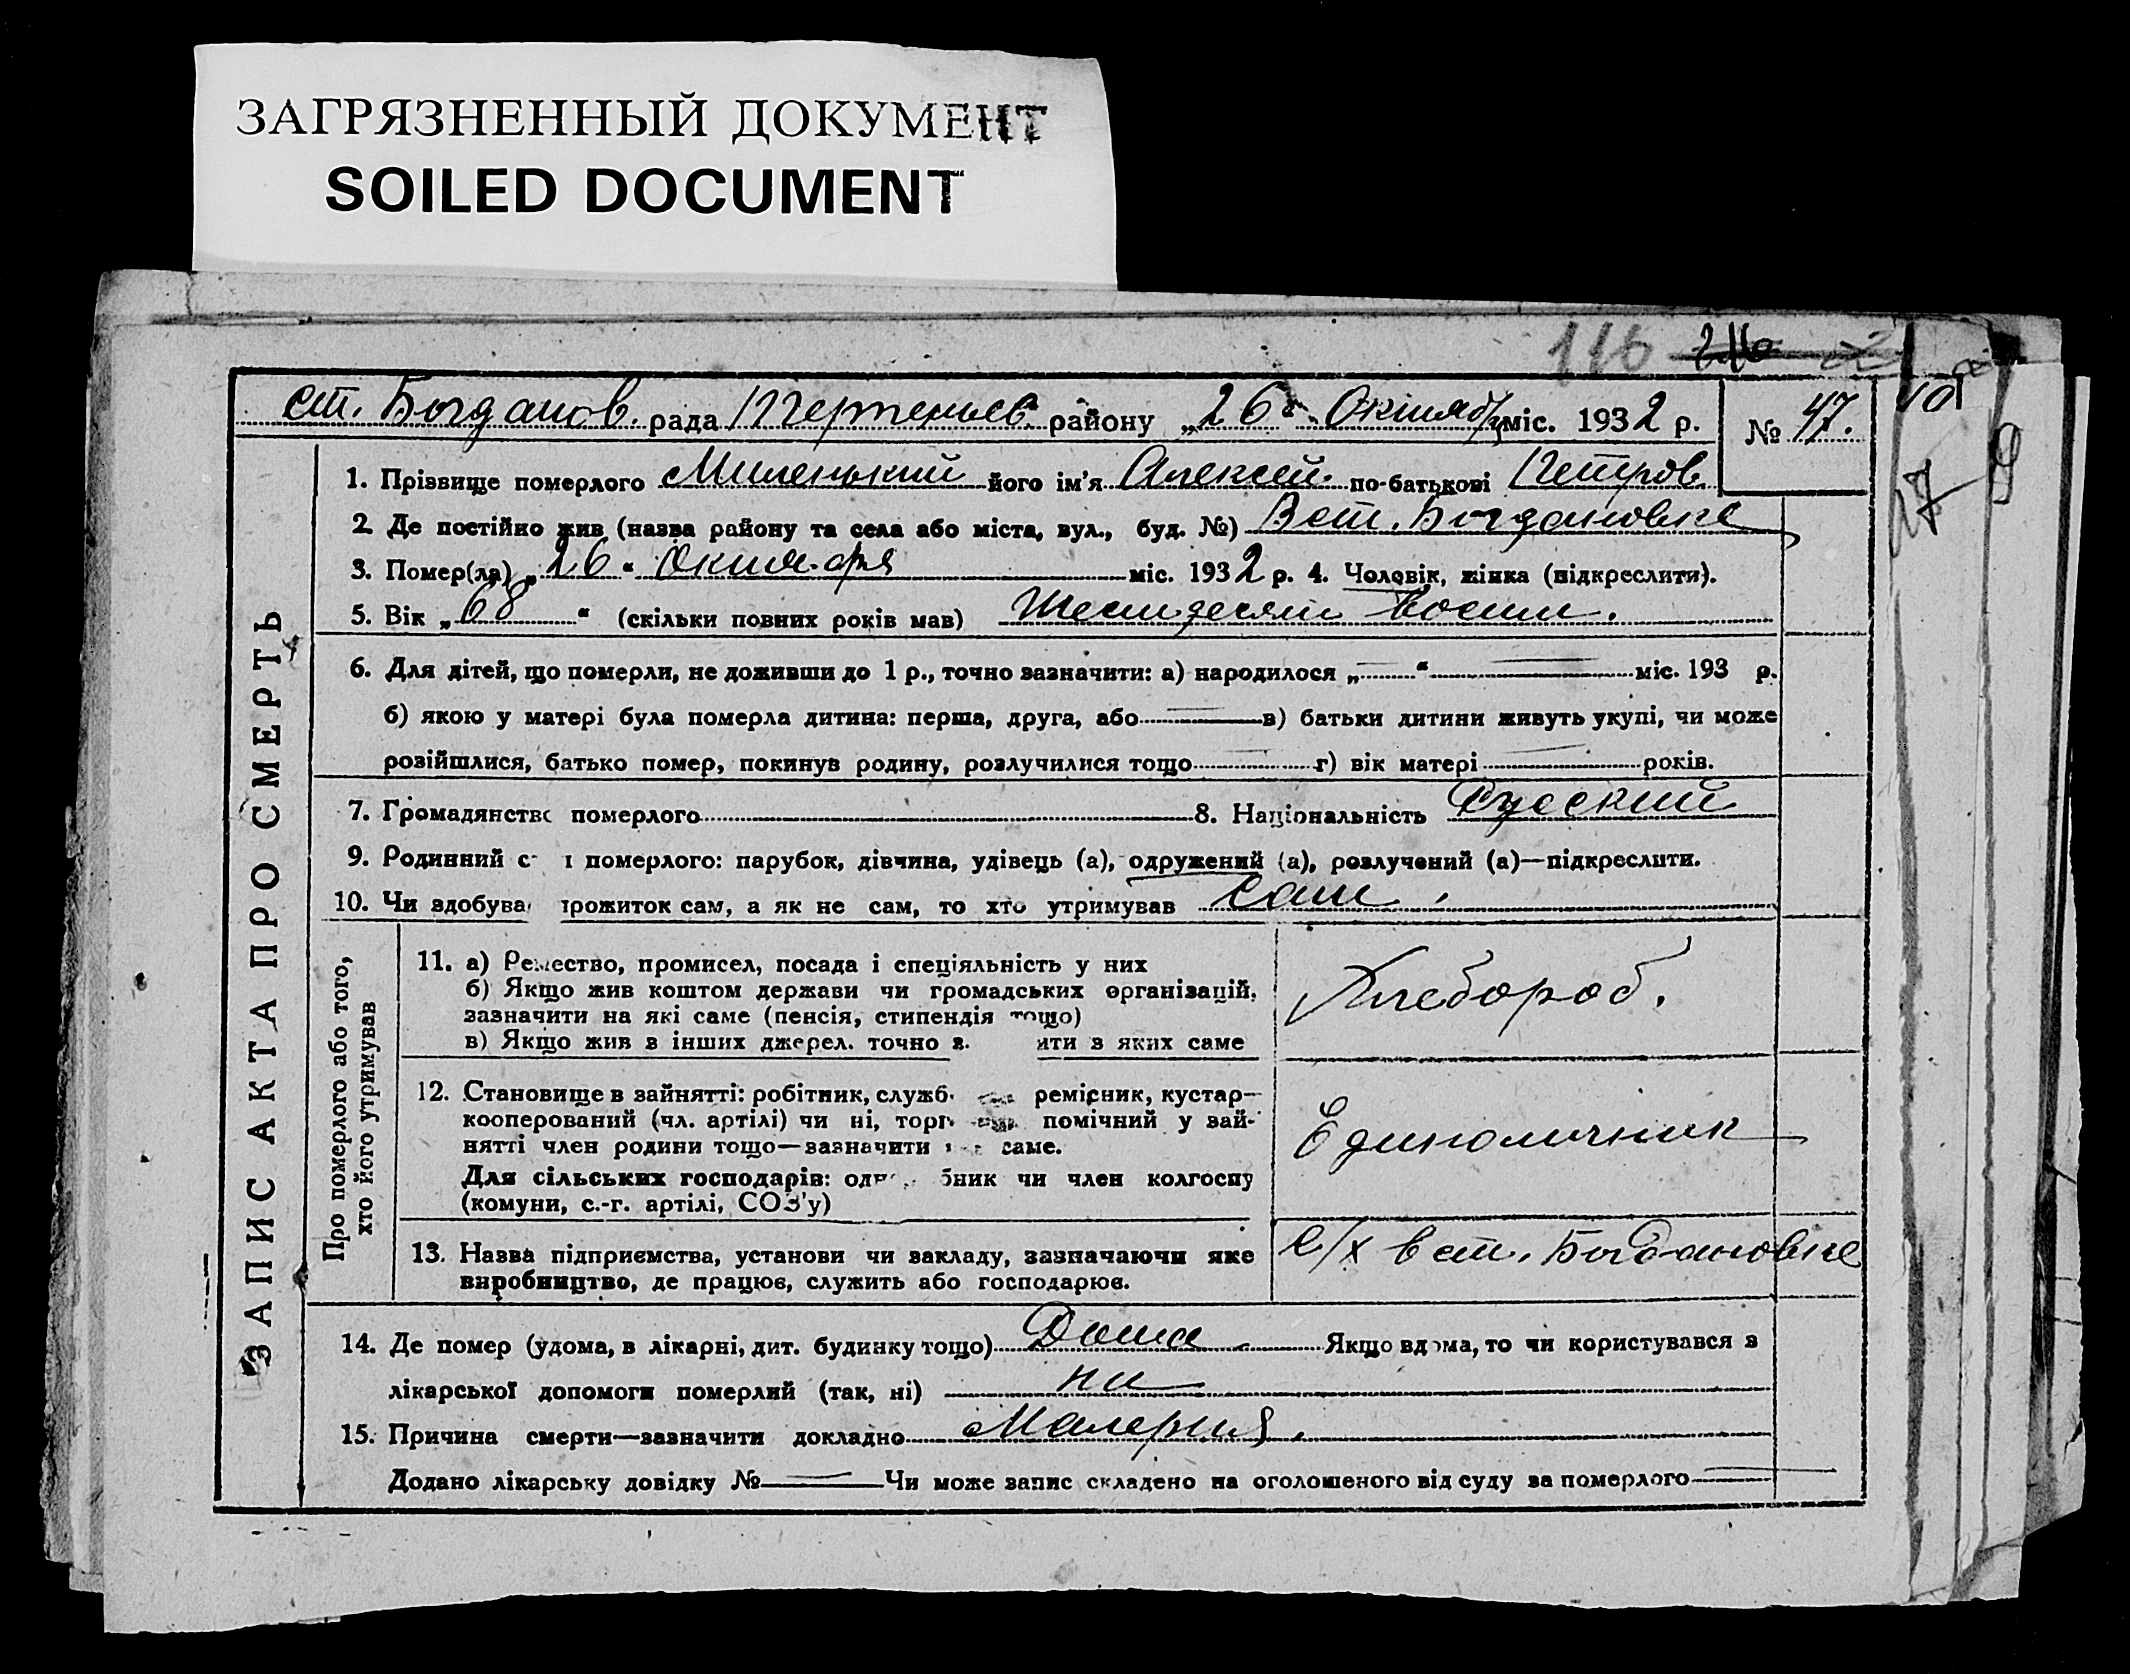 ЗАГРЯЗНЕННЫЙ ДОКУМЕНТ
SOILED DOCUMENT
116 216
ст. Богданов. рада району „26“ Октября міс. 1932 р. № 47.
1. Прізвище померлого Миленький його ім'я Алексей по-батькові Петров.
2. Де постійно жив (назва району та села або міста, вул., буд. №) В ст. Богдановке
3. Помер(ла) „26“ Октября міс. 1932 р. 4. Чоловік, жінка (підкреслити).
5. Вік „68“ (скільки повних років мав) Шестдесят восем.
6. Для дітей, що померли, не доживши до 1 р., точно зазначити: а) народилося „ “ міс. 193 р.
б) якою у матері була померла дитина: перша, друга, або в) батьки дитини живуть укупі, чи може
розійшлися, батько помер, покинув родину, розлучилися тощо г) вік матері років.
7. Громадянство померлого 8. Національність Русский
9. Родинний померлого: парубок, дівчина, удівець (а), одружений (а), розлучений (а)—підкреслити.
10. Чи здобува прожиток сам, а як не сам, то хто утримував сам.
ЗАПИС АКТА ПРО СМЕРТЬ
Про померлого або того,
хто його утримував
11. а) Ремество, промисел, посада і спеціяльність у них
б) Якщо жив коштом держави чи громадських організацій,
зазначити на які саме (пенсія, стипендія тощо)
в) Якщо жив з інших джерел. точно з ити з яких саме
Хлебороб.
12. Становище в зайнятті: робітник, служб ремісник, кустар—
кооперований (чл. артілі) чи ні, торг помічний у зай-
нятті член родини тощо—зазначити саме.
Для сільських господарів: одн бник чи член колгоспу
(комуни, с.-г. артілі, СОЗ'у)
Единоличник
13. Назва підприємства, установи чи закладу, зазначаючи яке
виробництво, де працює, служить або господарює.
С/х в ст. Богдановке
14. Де помер (удома, в лікарні, дит. будинку тощо) Дома. Якщо вдома, то чи користувався з
лікарської допомоги померлий (так, ні) ни
15. Причина смерти—зазначити докладно Малерия.
Додано лікарську довідку № Чи може запис складено на оголошеного від суду за померлого
47